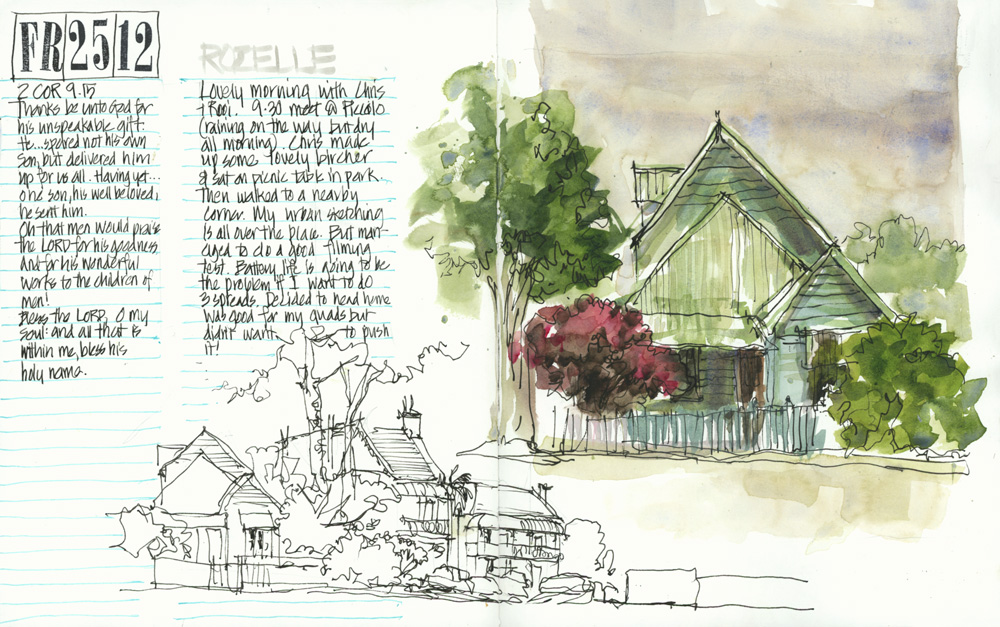 FR 25 12
2 COR 9.15
Thanks be unto God for
his unspeakable gift.
He...spared not his own
son, but delivered him
up for us all. Having yet...
one son, his well beloved,
he sent him.
Oh that men would praise
the LORD for his goodness
and for his wonderful
works to the children of
men!
Bless the LORD, O my
soul: and all that is
within me, bless his
holy name.
ROZELLE
Lovely morning with Chris
+ 9.30 meet @ Piccolo
(raining on the way but dry
all morning). Chris made
up some lovely bircher
& sat on picnic table in park.
Then walked to a nearby
corner. My urban sketching
is all over the place. But man-
aged to do a good filming
test. Battery life is going to be
the problem if I want to do
3 spreads. Decided to head home
was good for my quads but
didn't want to push
it!